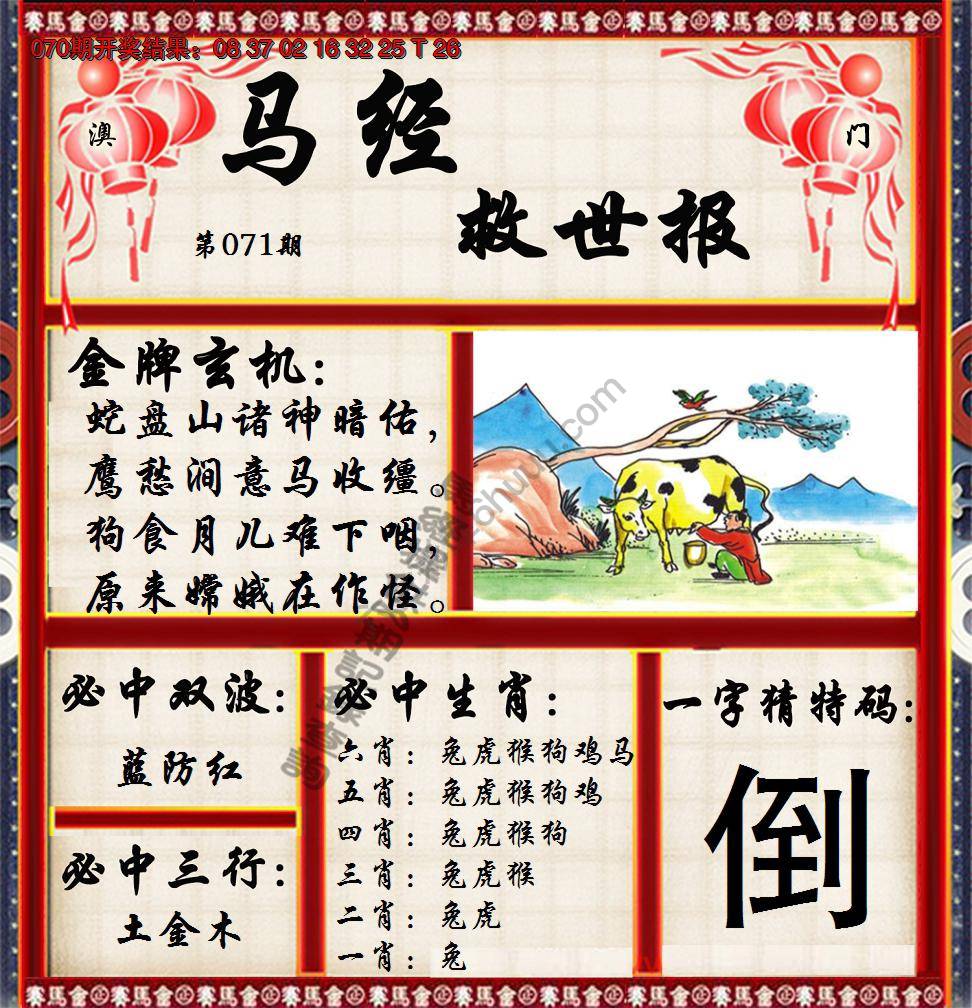 070期开奖结果：08 37 02 16 32 25 T 26
澳
门
马经
救世报
第071期
金牌玄机：
蛇盘山诸神暗佑，
鹰愁涧意马收缰。
狗食月儿难下咽，
原来嫦娥在作怪。
必中双波：
蓝防红
必中三行：
土金木
必中生肖：
六肖：兔虎猴狗鸡马
五肖：兔虎猴狗鸡
四肖：兔虎猴狗
三肖：兔虎猴
二肖：兔虎
一肖：兔
一字猜特码：
倒